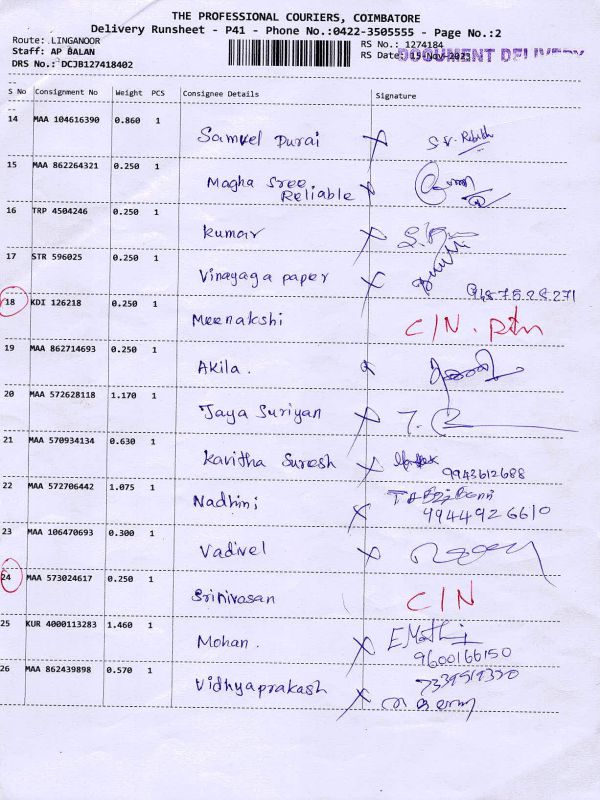 THE PROFESSIONAL COURIERS, COIMBATORE
Delivery Runsheet - P41 - Phone No.:0422-3505555 - Page No.:2
Route: LINGANOOR
Staff: AP BALAN
DRS No.: DCJB127418402
RS No.: 1274184
RS Date: 15-Nov-2023
DOCUMENT DELIVERY
S No Consignment No Weight PCS Consignee Details Signature
14 MAA 104616390 0.860 1 Samuel Durai
15 MAA 862264321 0.250 1 Magha Sree Reliable
16 TRP 4504246 0.250 1 Kumar
17 STR 596025 0.250 1 Vinayaga paper
18 KDI 126218 0.250 1 Meenakshi C/N. Rtn
19 MAA 862714693 0.250 1 Akila.
20 MAA 572628118 1.170 1 Jaya Suriyan
21 MAA 570934134 0.630 1 Kavitha Suresh 9943612688
22 MAA 572706442 1.075 1 Nadhini 9944926610
23 MAA 106470693 0.300 1 Vadivel
24 MAA 573024617 0.250 1 Srinivasan C/N
25 KUR 4000113283 1.460 1 Mohan. 9600166150
26 MAA 862439898 0.570 1 Vidhyaprakash